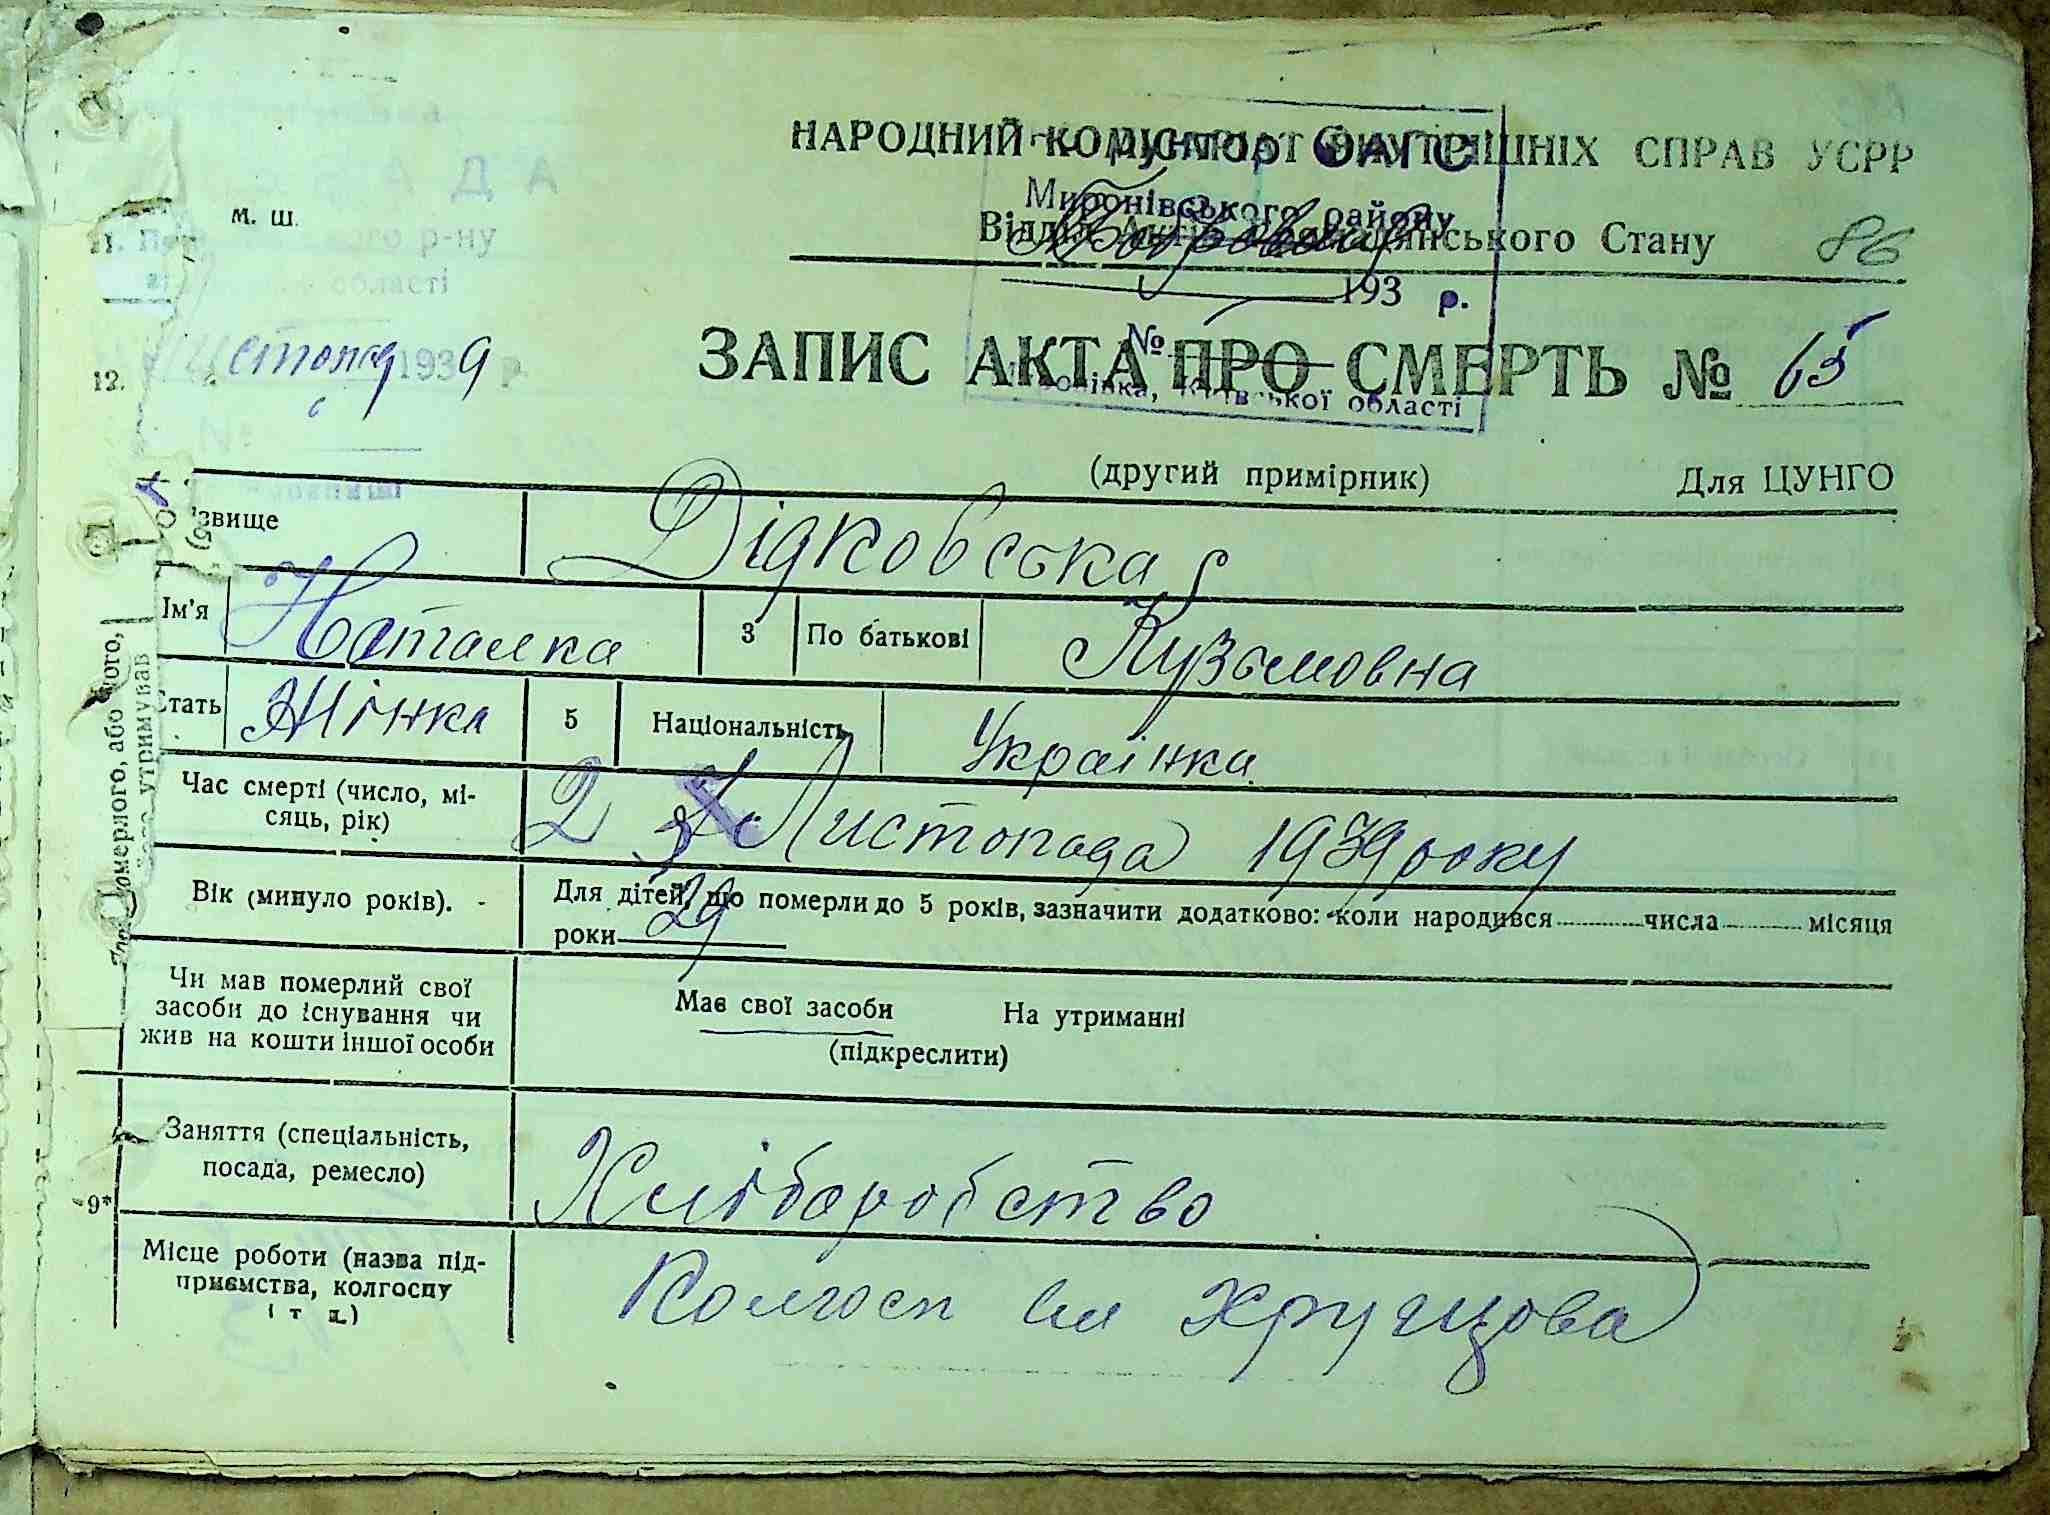 НАРОДНИЙ КОМІСАРІАТ ВНУТРІШНІХ СПРАВ УСРР
ЗАГС
Миронівського району
Відділ Актів Громадянського Стану 86
193 р.
№
Київської області
м. ш.
р-ну
області
12. Листопад 1939 р.
ЗАПИС АКТА ПРО СМЕРТЬ № 65
(другий примірник) Для ЦУНГО
звище Дідковська
Ім'я Наталка 3 По батькові Кузьмовна
Стать Жінка 5 Національність Українка
Час смерті (число, мі-
сяць, рік) 2 Листопада 1939 року
Вік (минуло років). - Для дітей, що померли до 5 років, зазначити додатково: коли народився числа місяця
роки 29
Чи мав померлий свої
засоби до існування чи
жив на кошти іншої особи
Має свої засоби На утриманні
(підкреслити)
Заняття (спеціальність,
посада, ремесло) Хліборобство
9*
Місце роботи (назва під-
приємства, колгоспу
і т д.) Колгосп ім Хрущова
померлого, або того,
утримував